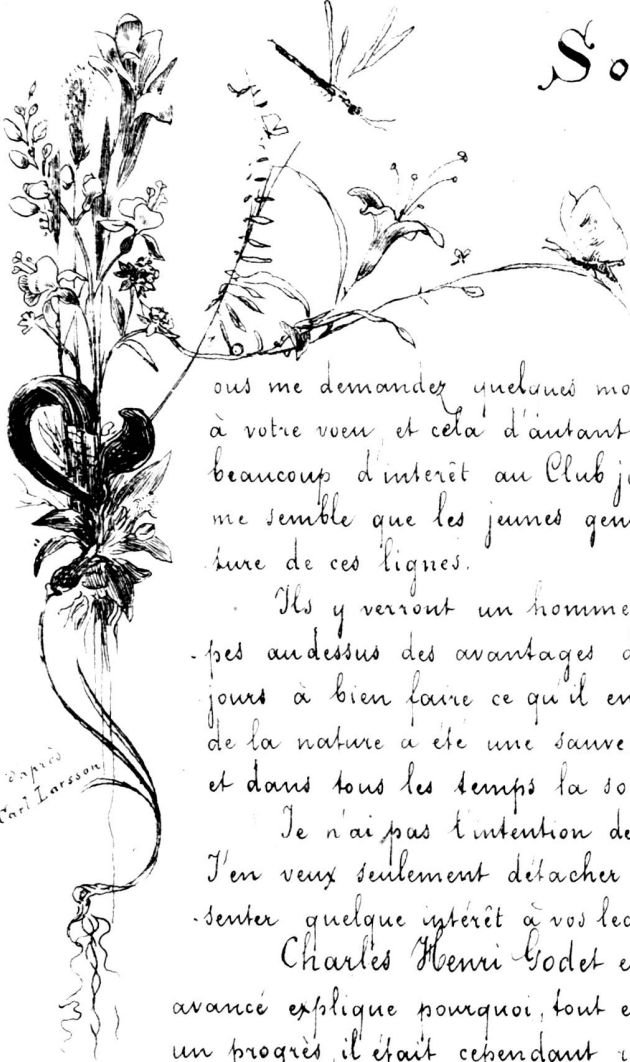 So
ous me demandez quelques mo
à votre voeu, et cela d'autant
beaucoup d'interêt au Club j
me semble que les jeunes gen
ture de ces lignes.
Ils y verront un homme
-pes audessus des avantages d
jours à bien faire ce qu'il en
de la nature a été une sauve
et dans tous les temps la so
Je n'ai pas l'intention de
J'en veux seulement détacher
-senter quelque intérêt à vos lec
Charles Henri Godet e
avancé explique pourquoi, tout e
un progrès, il était cependant
d'après
Carl Larsson